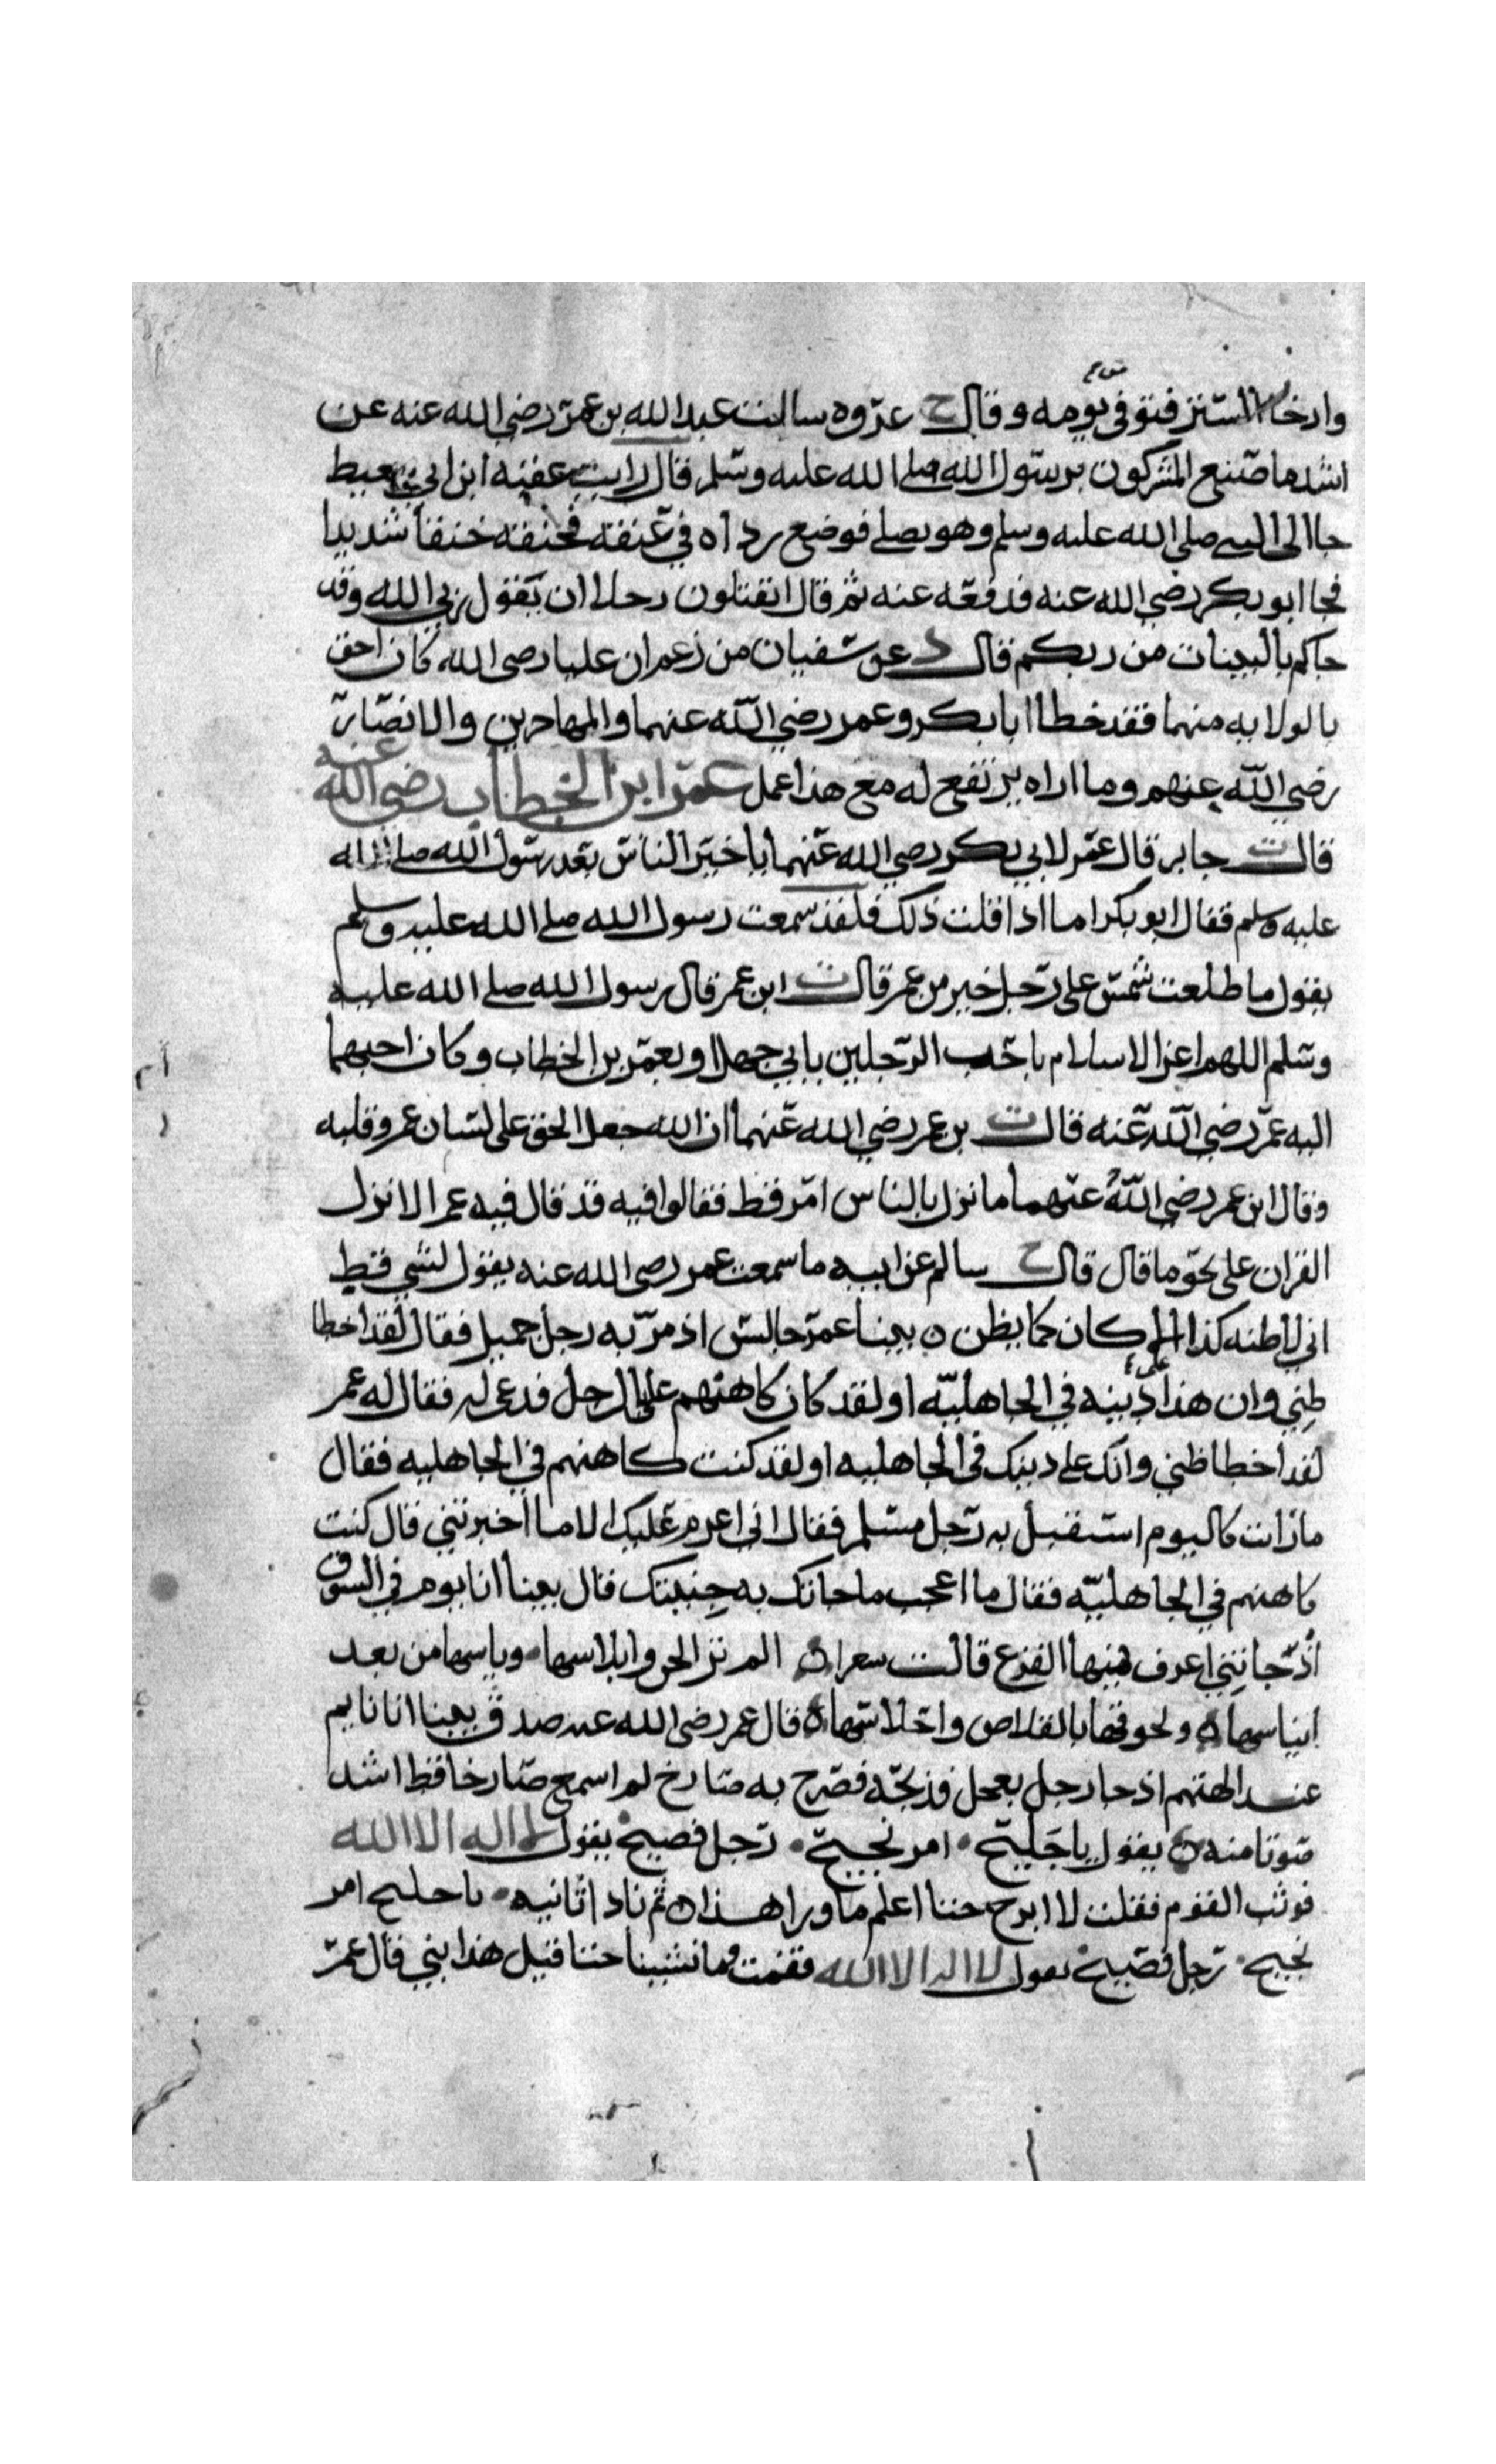 وارخا الستر فتوفى يومه وقال ح عروه سالت عبد الله بن عمر رضي الله عنه عن
اشد ما صنع المشركون برسول الله صلى الله عليه وسلم قال رايت عقبه ابن ابي معيط
جا الى النبي صلى الله عليه وسلم وهو يصلي فوضع رداه في عنقه فخنقه خنقا شديدا
فجا ابو بكر رضي الله عنه فدفعه عنه ثم قال اتقتلون رجلا ان يقول ربي الله وقد
جاكم بالبينات من ربكم قال د عن سفيان من زعم ان عليا رضي الله كان احق
بالولايه منهما فقد خطا ابا بكر وعمر رضي الله عنهما والمهاجرين والانصار
رضي الله عنهم وما اراه يرتفع له مع هذا عمل عمر ابن الخطاب رضي الله عنه
قال ت جابر قال عمر لابي بكر رضي الله عنهما يا خير الناس بعد رسول الله صلى الله
عليه وسلم فقال ابو بكر اما اذا قلت ذلك فلقد سمعت رسول الله صلى الله عليه وسلم
يقول ما طلعت شمس على رجل خير من عمر قال ت ابن عمر قال رسول الله صلى الله عليه
وسلم اللهم اعز الاسلام باحب الرجلين بابي جهل او بعمر بن الخطاب وكان احبهما
اليه عمر رضي الله عنه قال ت بن عمر رضي الله عنهما ان الله جعل الحق على لسان عمر وقلبه
وقال ابن عمر رضي الله عنهما ما نزل بالناس امر قط فقالوا فيه قد قال فيه عمر الا نزل
القران على نحو ما قال قال ح سالم عن ابيه ما سمعت عمر رضي الله عنه يقول لشي قط
اني لاظنه كذا الا كان كما يظن ه بينا عمر جالس اذ مر به رجل جميل فقال لقد اخطا
ظني وان هذا على دينه في الجاهليه او لقد كان كاهنهم على الرجل فدعى له فقال له عمر
لقد اخطا ظني وانك على دينك في الجاهليه او لقد كنت كاهنهم في الجاهليه فقال
ما رات كاليوم استقبل به رجل مسلم فقال اني اعزم عليك الا ما اخبرتني قال كنت
كاهنهم في الجاهليه فقال ما اعجب ما جاتك به جنيتك قال بينا انا يوم في السوق
اذ جاتني اعرف فيها الفزع قالت سعرا ه الم تر الجن وابلاسها ٠ وياسها من بعد
انياسها ه ولحوقها بالقلاص واحلاسها ه قال عمر رضي الله عنه صدق بينا انا نايم
عند الهتهم اذ جا رجل بعجل فذبحه فصرخ به صارخ لم اسمع صارخا قط اشد
صوتا منه ه يقول يا جليح ٠ امر نجيح ٠ رجل فصيح يقول لا اله الا الله
فوثب القوم فقلت لا ابرح حتا اعلم ما ورا هذا ه ثم نادا ثانيه ٠ يا جليح امر
نجيح ٠ رجل فصيح يقول لا اله الا الله فقمت وما نشبنا حتا قيل هذا نبي قال عمر